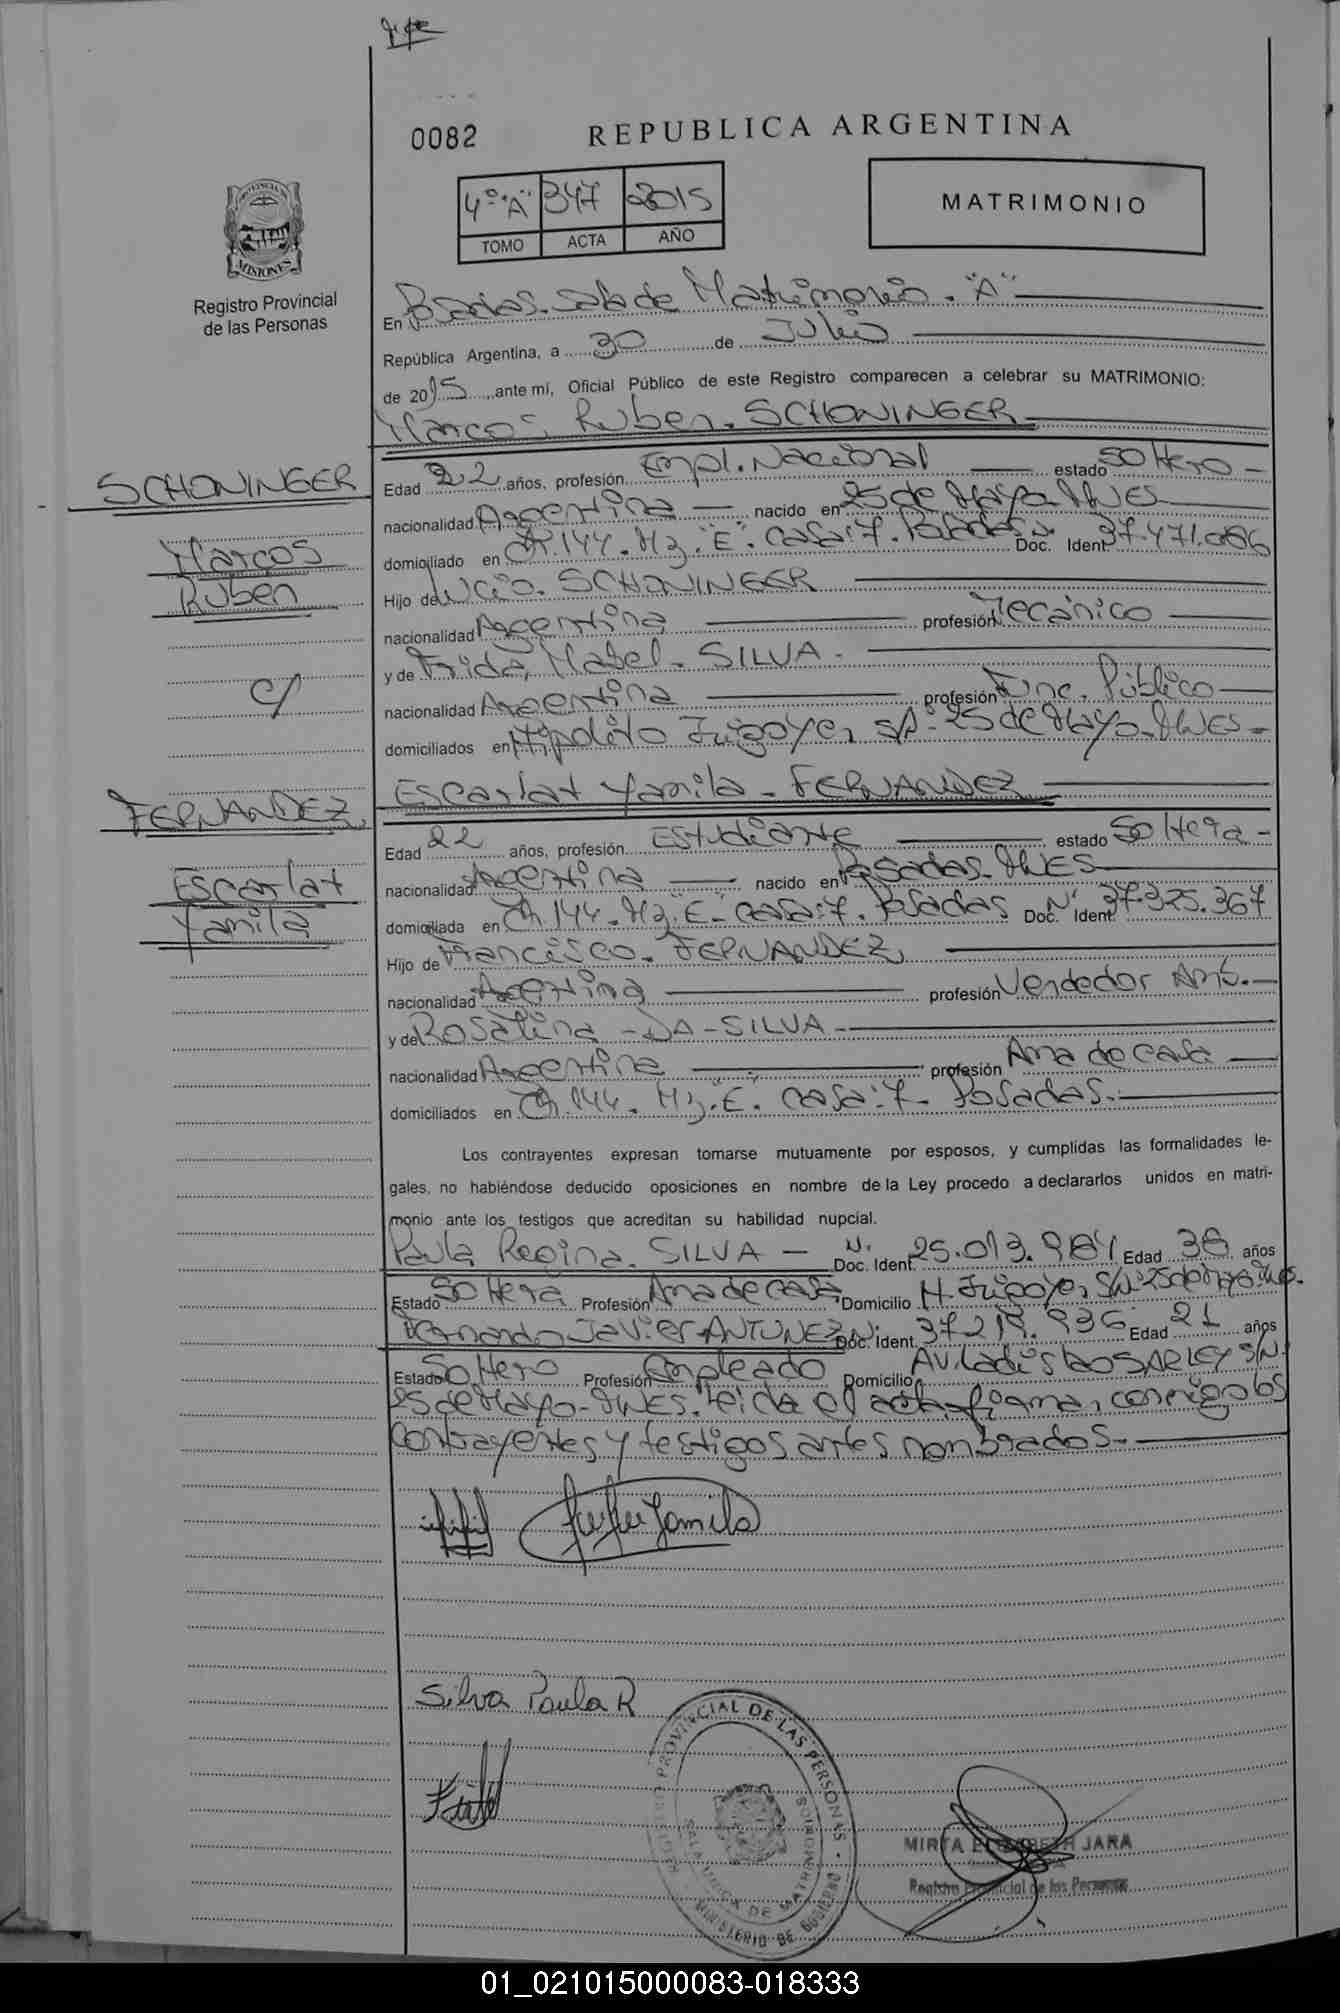 0082
REPUBLICA ARGENTINA
4º "A" 347 2015
TOMO ACTA AÑO
MATRIMONIO
PROVINCIA DE
MISIONES
Registro Provincial
de las Personas
En Posadas. Sala de Matrimonio. "A"
República Argentina, a 30 de Julio
de 2015, ante mi, Oficial Público de este Registro comparecen a celebrar su MATRIMONIO:
Marcos Ruben. SCHONINGER
SCHONINGER
Marcos
Ruben
c/
FERNANDEZ
Escarlat
Yamila
Edad 22 años, profesión Empl. Nacional estado Soltero
nacionalidad Argentina nacido en 25 de Mayo Mnes
domiciliado en Ch. 144. Mz. "E". casa: 7. Posadas Doc. Ident Nº 37.471.086
Hijo de Lucio. SCHONINGER
nacionalidad Argentina profesión Mecánico
y de Frida Mabel. SILVA.
nacionalidad Argentina profesión Func. Público
domiciliados en Hipolito Irigoyen s/nº 25 de Mayo. Mnes
Escarlat Yamila - FERNANDEZ
Edad 22 años, profesión Estudiante estado Soltera
nacionalidad Argentina nacido en Posadas. Mnes
domiciliada en Ch. 144. Mz. "E". casa: 7. Posadas Doc. Ident Nº 37.325.367
Hijo de Francisco. FERNANDEZ
nacionalidad Argentina profesión Vendedor Amb.
y de Rosalina - DA - SILVA
nacionalidad Argentina profesión Ama de casa
domiciliados en Ch. 144. Mz. E. casa: 7. Posadas.
Los contrayentes expresan tomarse mutuamente por esposos, y cumplidas las formalidades le-
gales, no habiéndose deducido oposiciones en nombre de la Ley procedo a declararlos unidos en matri-
monio ante los testigos que acreditan su habilidad nupcial.
Paula Regina. SILVA Doc. Ident. Nº 25.013.984 Edad 38 años
Estado Soltera Profesión Ama de casa Domicilio H. Irigoyen S/Nº 25 de Mayo Mnes.
Fernando Javier ANTUNEZ Doc. Ident. Nº 37.219.936 Edad 21 años
Estado Soltero Profesión Empleado Domicilio Av. Ladislao SARLEY S/N.
25 de Mayo - Mnes. Leida el acta, firman conmigo los
contrayentes y testigos antes nombrados.
Yamila
Silva Paula R
REGISTRO PROVINCIAL DE LAS PERSONAS
SALA UNICA DE MATRIMONIOS
MINISTERIO DE GOBIERNO
MIRTA ELIZABETH JARA
Registro Provincial de las Personas
01_021015000083-018333